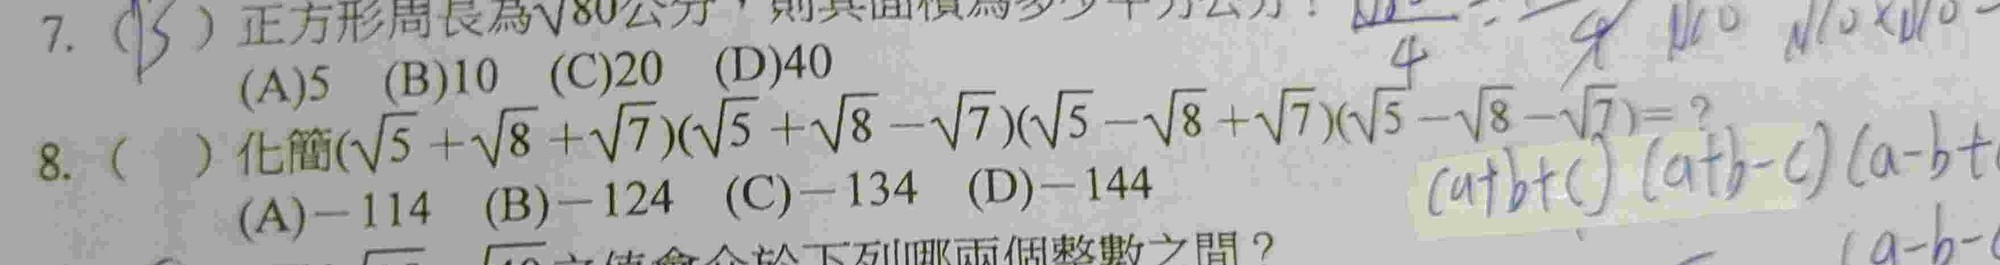 7. (B) 正方形周長為√80公分，則其面積為多少平方公分？
(A)5 (B)10 (C)20 (D)40
8. ( ) 化簡(√5+√8+√7)(√5+√8−√7)(√5−√8+√7)(√5−√8−√7)=？
(A)−114 (B)−124 (C)−134 (D)−144
(a+b+c) (a+b-c) (a-b+
(a-b-
之值會介於下列哪兩個整數之間？